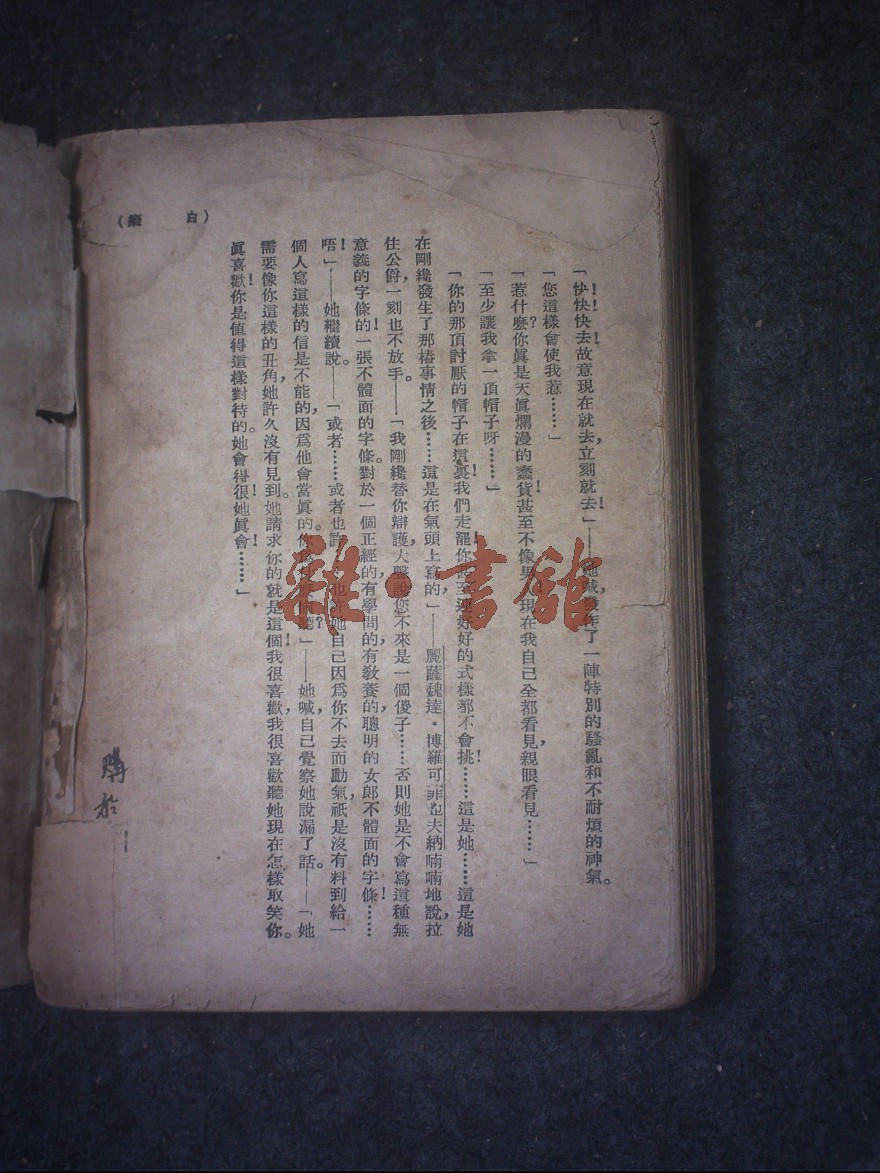 「快!快!快去!故意現在就去,立刻就去!」——她喊,
作了一陣特別的騷亂和不耐煩的神氣。
「您這樣會使我惹……」
「惹什麼?你眞是天眞爛漫的蠢貨!甚至不像男
現在我自己全都看見,親眼看見……」
「至少讓我拿一頂帽子呀……」
「你的那頂討厭的帽子在這裏!我們走罷!你甚至連好好的式樣都不會挑!……這是她……這是她
在剛纔發生了那樁事情之後……這是在氣頭上寫的,」——麗薩魏達·博羅可菲也夫納喃喃地說,拉
住公爵,一刻也不放手。——「我剛纔替你辯護,大聲說您不來是一個傻子……否則她是不會寫這種無
意義的字條的!一張不體面的字條。對於一個正經的,有學問的,有教養的,聰明的女郎不體面的字條!……
唔!」——她繼續說。——「或者……或者也許……也許她自己因爲你不去而動氣,祇是沒有料到給一
個人寫這樣的信是不能的,因爲他會當眞的。你
聽?」——她喊,自己覺察她說漏了話。——「她
需要像你這樣的丑角,她許久沒有見到。她請求你的就是這個!我很喜歡,我很喜歡聽她現在怎樣取笑你。
眞喜歡!你是值得這樣對待的。她會得很!她眞會!……」
(白 癡)
雜·書館
購於